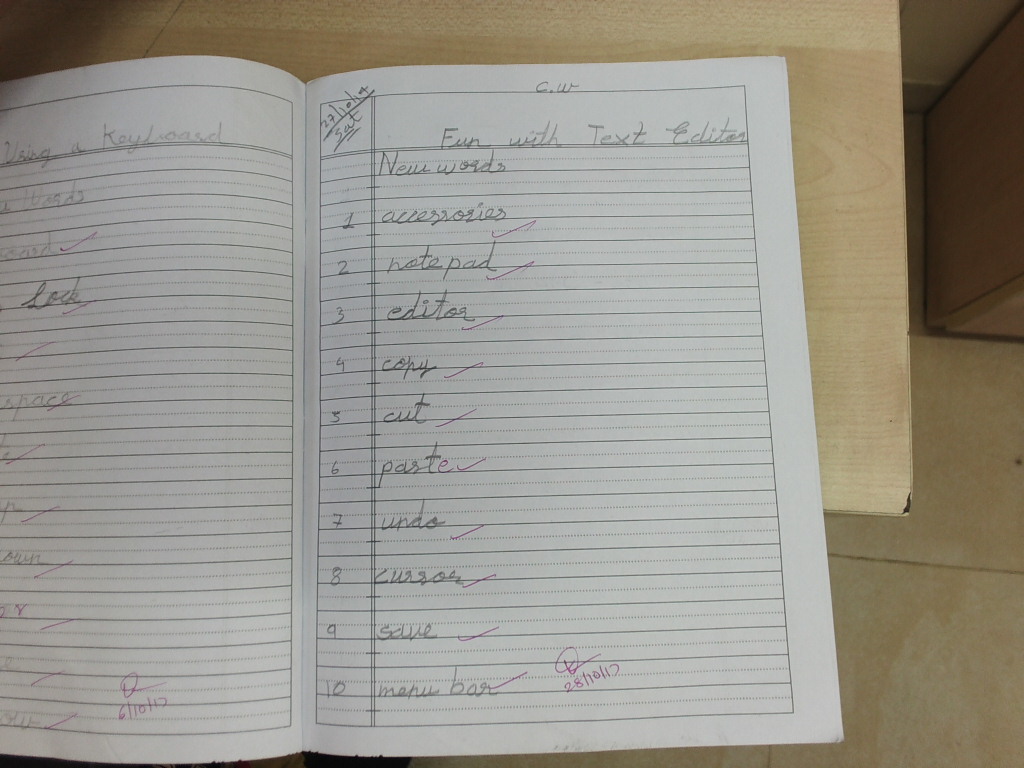 Using a Keyboard
Words
Lock
space
own
6/10/17
C.W
27/10/17
Sat
Fun with Text Editor
New words
1 accessories
2 notepad
3 editor
4 copy
5 cut
6 paste
7 undo
8 cursor
9 save
10 menu bar
28/10/17